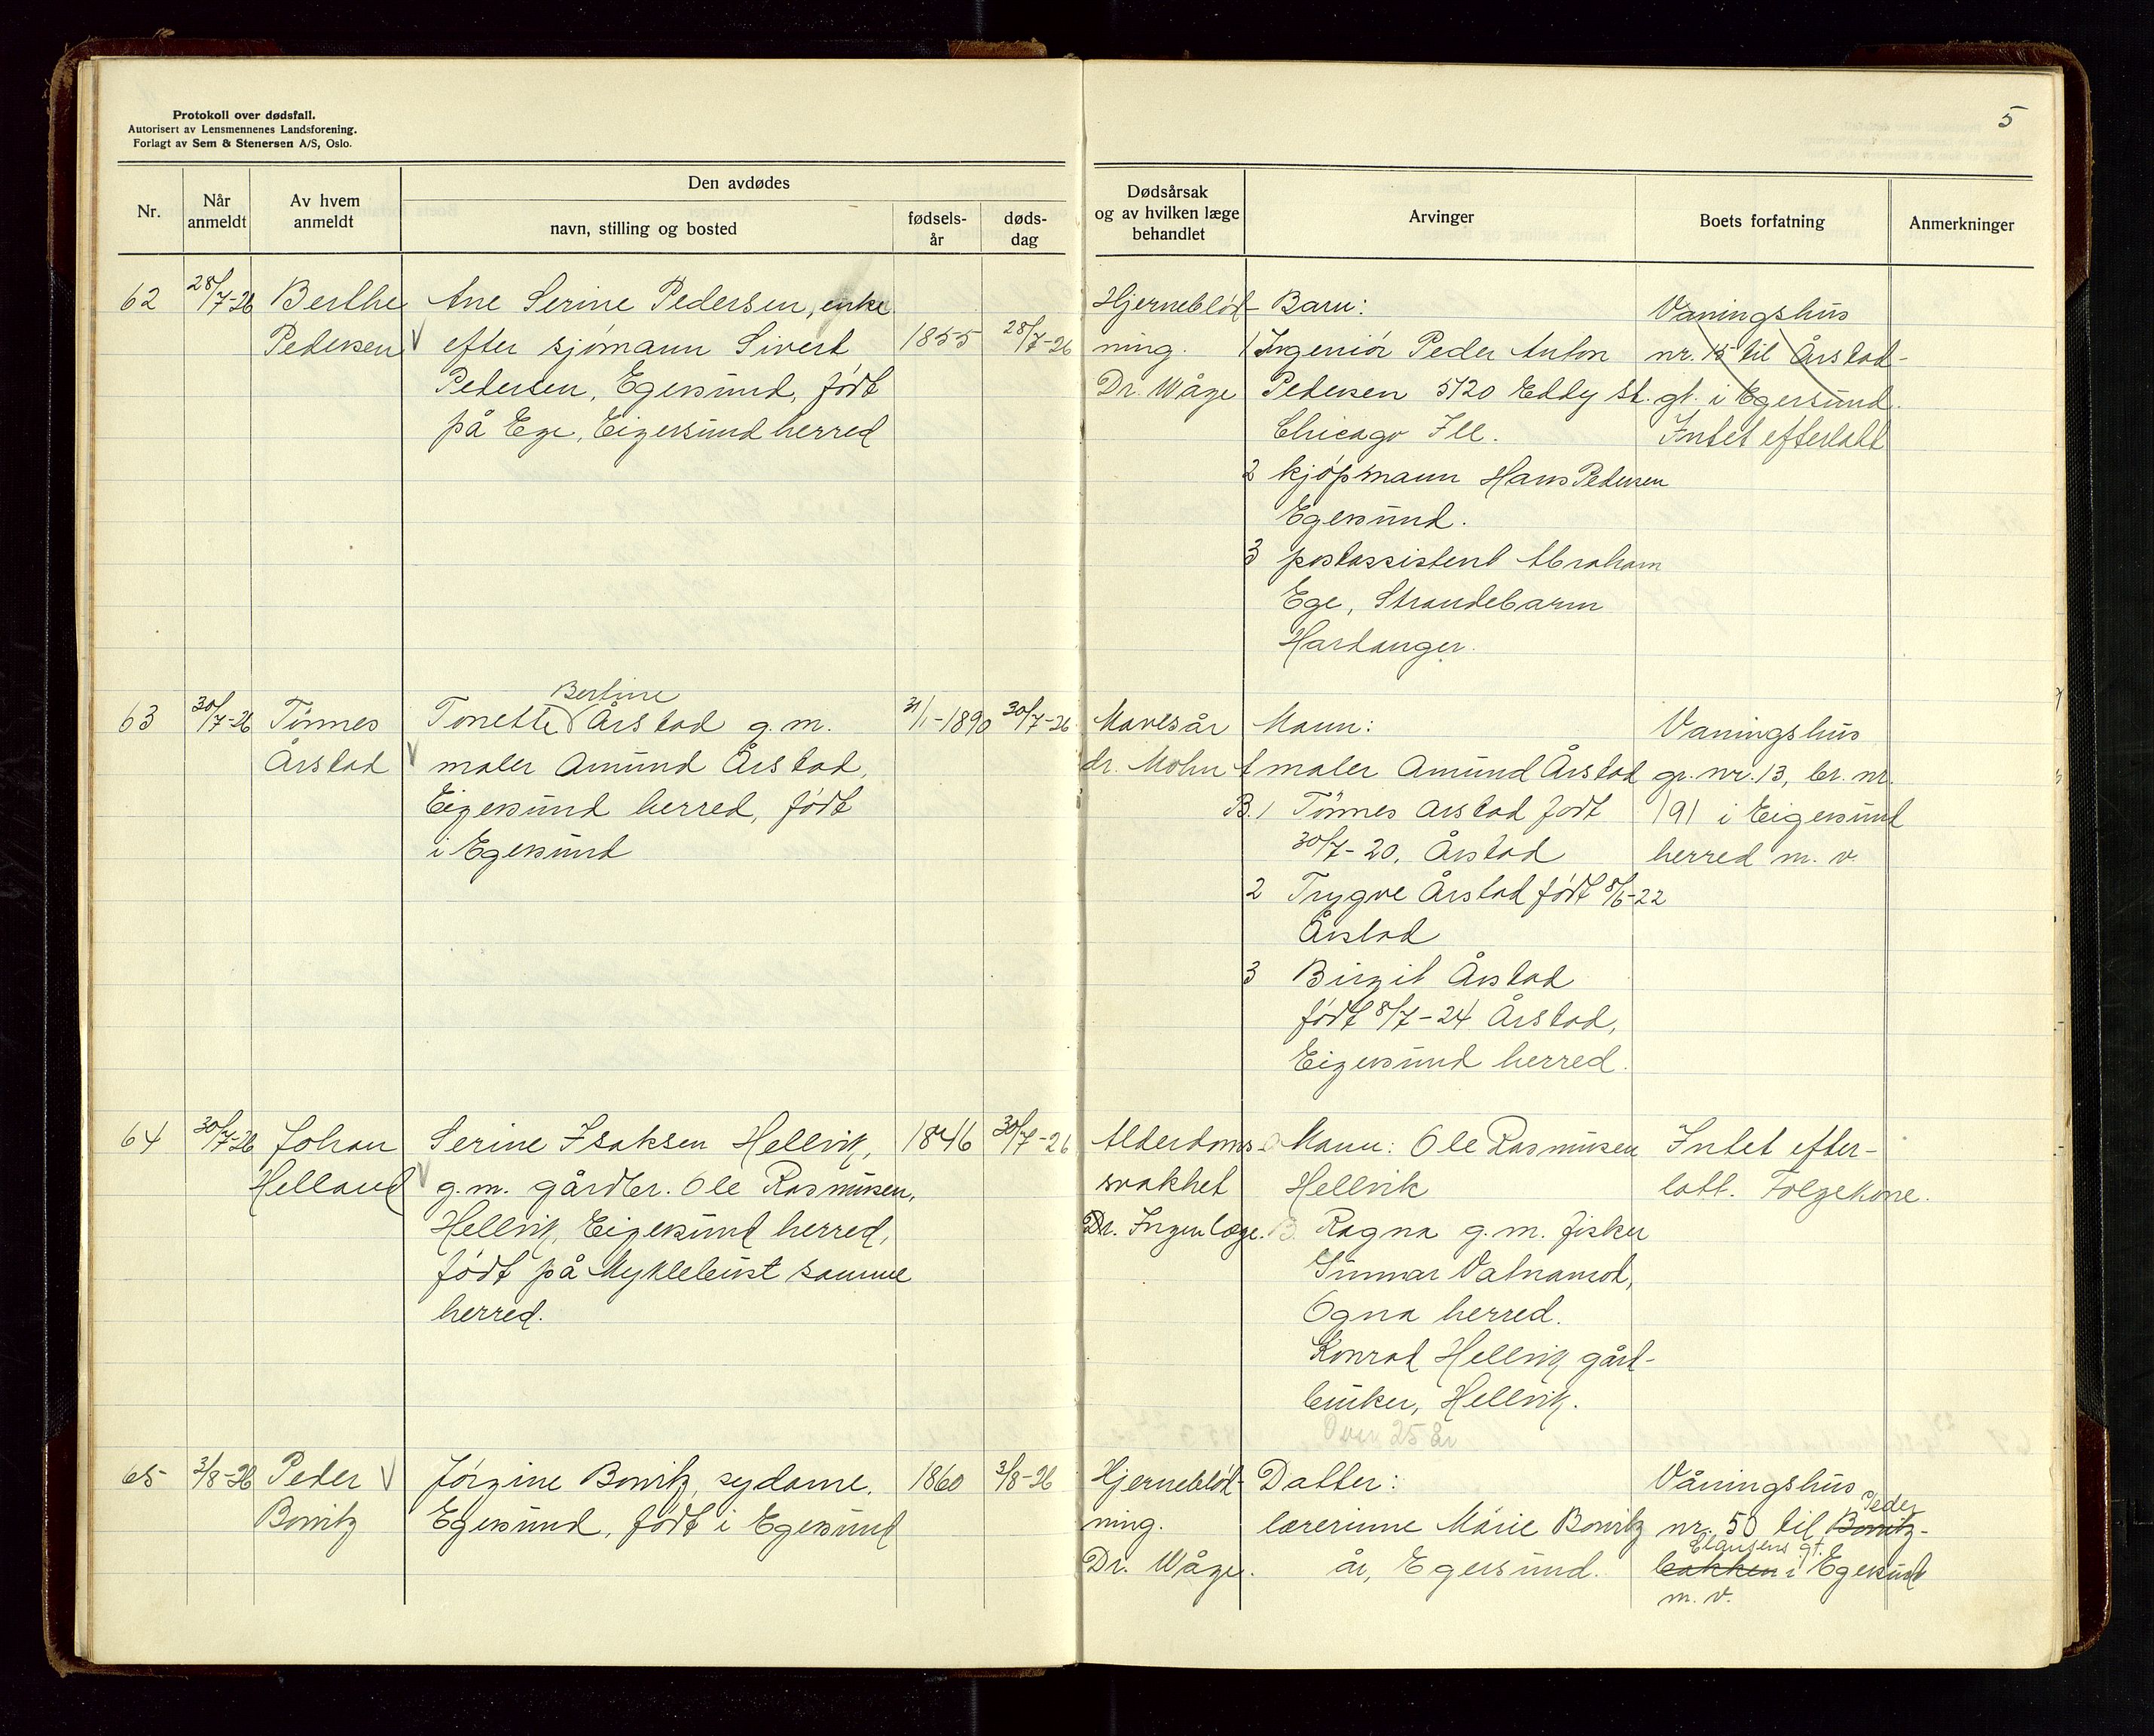 Protokoll over dødsfall.
Autorisert av Lensmennenes Landsforening.
Forlagt av Sem & Stenersen A/S, Oslo.
5
Nr.
Når anmeldt
Av hvem anmeldt
Den avdødes
navn, stilling og bosted
fødsels-år
døds-dag
Dødsårsak og av hvilken læge behandlet
Arvinger
Boets forfatning
Anmerkninger
62
28/7-26
Berthe
Pedersen
Ane Serine Pedersen, enke
efter sjømann Sivert
Pedersen, Egersund, født
på Ege, Eigersund herred
1855
28/7-26
Hjerneblød-
ning.
Dr. Wåge
Barn:
1 Ingeniör Peder Anton
Pedersen 5120 Eddy St.
Chicago Ill.
2 kjøpmann Hans Pedersen
Egersund.
3 postassistent Abraham
Ege, Strandebarm
Hardanger.
Vaningshus
nr. 15 til Årstad-
gt. i Egersund.
Intet efterlatt
63
30/7-26
Tønnes
Årstad
Bertine
Tonette Årstad g.m.
maler Amund Årstad,
Eigersund herred, født
i Egersund
31/1-1890
30/7-26
Mavesår
dr. Mohn
Mann:
maler Amund Årstad
B. 1 Tønnes Årstad født
30/7-20, Årstad
2 Trygve Årstad født 8/6-22
Årstad
3 Birgit Årstad
født 8/7-24 Årstad,
Eigersund herred.
Vaningshus
gr. nr. 13, br. nr.
191 i Eigersund
herred m. v.
64
30/7-26
Johan
Helland
Serine Isaksen Hellvik,
g.m. gårdbr. Ole Rasmusen,
Hellvik, Eigersund herred,
født på Myklebust samme
herred.
1846
30/7-26
Alderdoms-
svakhet
Dr. Ingen læge.
Mann: Ole Rasmusen
Hellvik
B. Ragna g.m. fisker
Gunnar Vatnamot,
Ogna herred.
Konrad Hellvik gård-
bruker, Hellvik.
Over 25 år
Intet efter-
latt. Folgekone.
65
3/8-26
Peder
Bowitz
Jørgine Bowitz, sydame.
Egersund, født i Egersund
1860
3/8-26
Hjerneblød-
ning.
Dr. Wåge.
Datter:
lærerinne Márie Bowitz
år, Egersund.
Våningshus
Peder
nr. 50 til Bowitz-
Clausens gt.
bakken i Egersund
m. v.